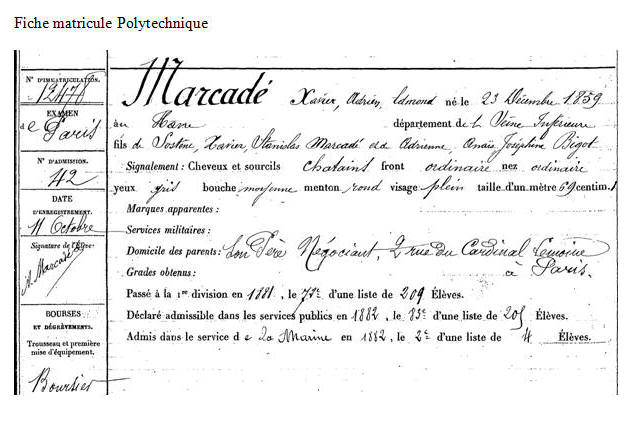 Fiche matricule Polytechnique
N° D'IMMATRICULATION.
12478
EXAMEN
de Paris
N° D'ADMISSION.
42
DATE
D'ENREGISTREMENT.
11 Octobre
Signature de l'Élève:
Marcadé
BOURSES
ET DÉGRÈVEMENTS.
Trousseau et première
mise d'équipement.
Boursier
Marcadé Xavier, Adrien, Edmond né le 23 Décembre 1859
au Havre département de la Seine Inférieure
fils de Sostène, Xavier, Stanislas Marcadé et d Adrienne, Anaïs Joséphine Bigot
Signalement: Cheveux et sourcils chatains front ordinaire nez ordinaire
yeux gris bouche moyenne menton rond visage plein taille d'un mètre 69 centim.
Marques apparentes:
Services militaires:
Domicile des parents: Son Père Négociant, 2 rue du Cardinal Lemoine
à Paris.
Grades obtenus:
Passé à la 1re division en 1881, le 77e d'une liste de 209 Élèves.
Déclaré admissible dans les services publics en 1882, le 83e d'une liste de 205 Élèves.
Admis dans le service de la Marine en 1882, le 2e d'une liste de 4 Élèves.